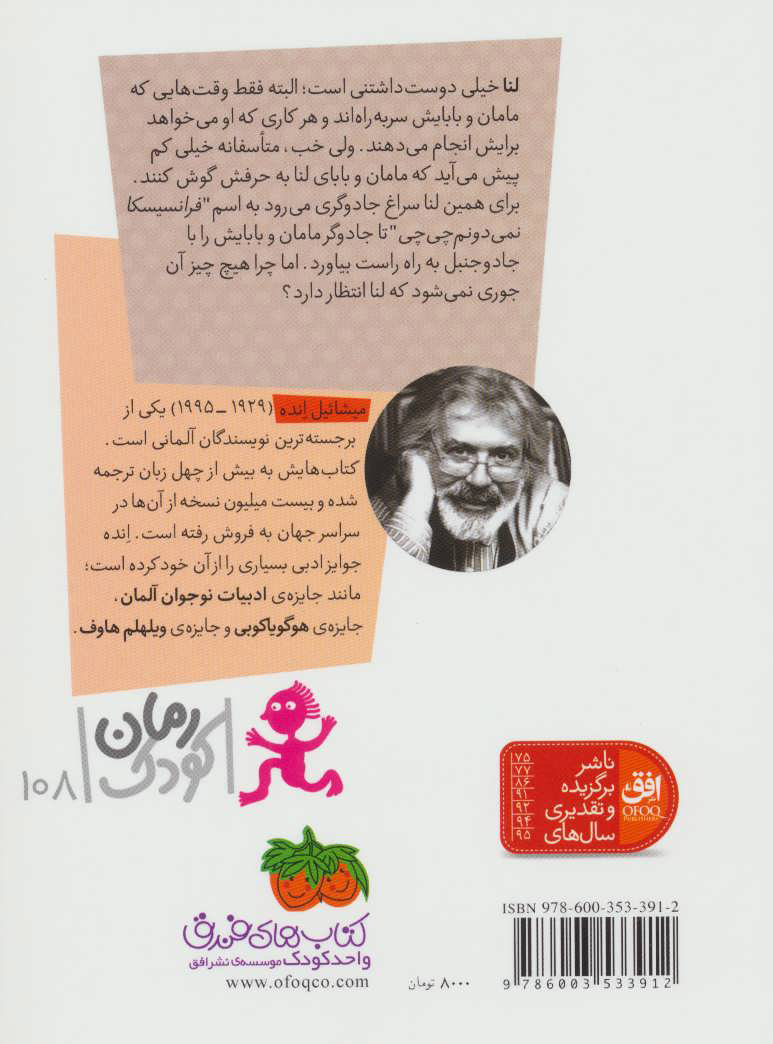 لنا خیلی دوست‌داشتنی است؛ البته فقط وقت‌هایی که
مامان و بابایش سربه‌راه‌اند و هر کاری که او می‌خواهد
برایش انجام می‌دهند. ولی خب، متأسفانه خیلی کم
پیش می‌آید که مامان و بابای لنا به حرفش گوش کنند.
برای همین لنا سراغ جادوگری می‌رود به اسم "فرانسیسکا
نمی‌دونم‌چی‌چی" تا جادوگر مامان و بابایش را با
جادوجنبل به راه راست بیاورد. اما چرا هیچ چیز آن
جوری نمی‌شود که لنا انتظار دارد؟
میشائیل اِنده (۱۹۲۹ ـ ۱۹۹۵) یکی از
برجسته‌ترین نویسندگان آلمانی است.
کتاب‌هایش به بیش از چهل زبان ترجمه
شده و بیست میلیون نسخه از آن‌ها در
سراسر جهان به فروش رفته است. اِنده
جوایز ادبی بسیاری را از آن خود کرده است؛
مانند جایزه‌ی ادبیات نوجوان آلمان،
جایزه‌ی هوگویاکوبی و جایزه‌ی ویلهلم هاوف.
رمان
کودک
۱۰۸
ناشر
برگزیده
و تقدیری
سال‌های
۷۵
۷۷
۸۶
۹۱
۹۲
۹۴
۹۵
افق
نشر
OFOQ
PUBLISHERS
کتاب‌های فندق
واحد کودک موسسه‌ی نشر افق
www.ofoqco.com
۸۰۰۰ تومان
ISBN 978-600-353-391-2
9 786003 533912